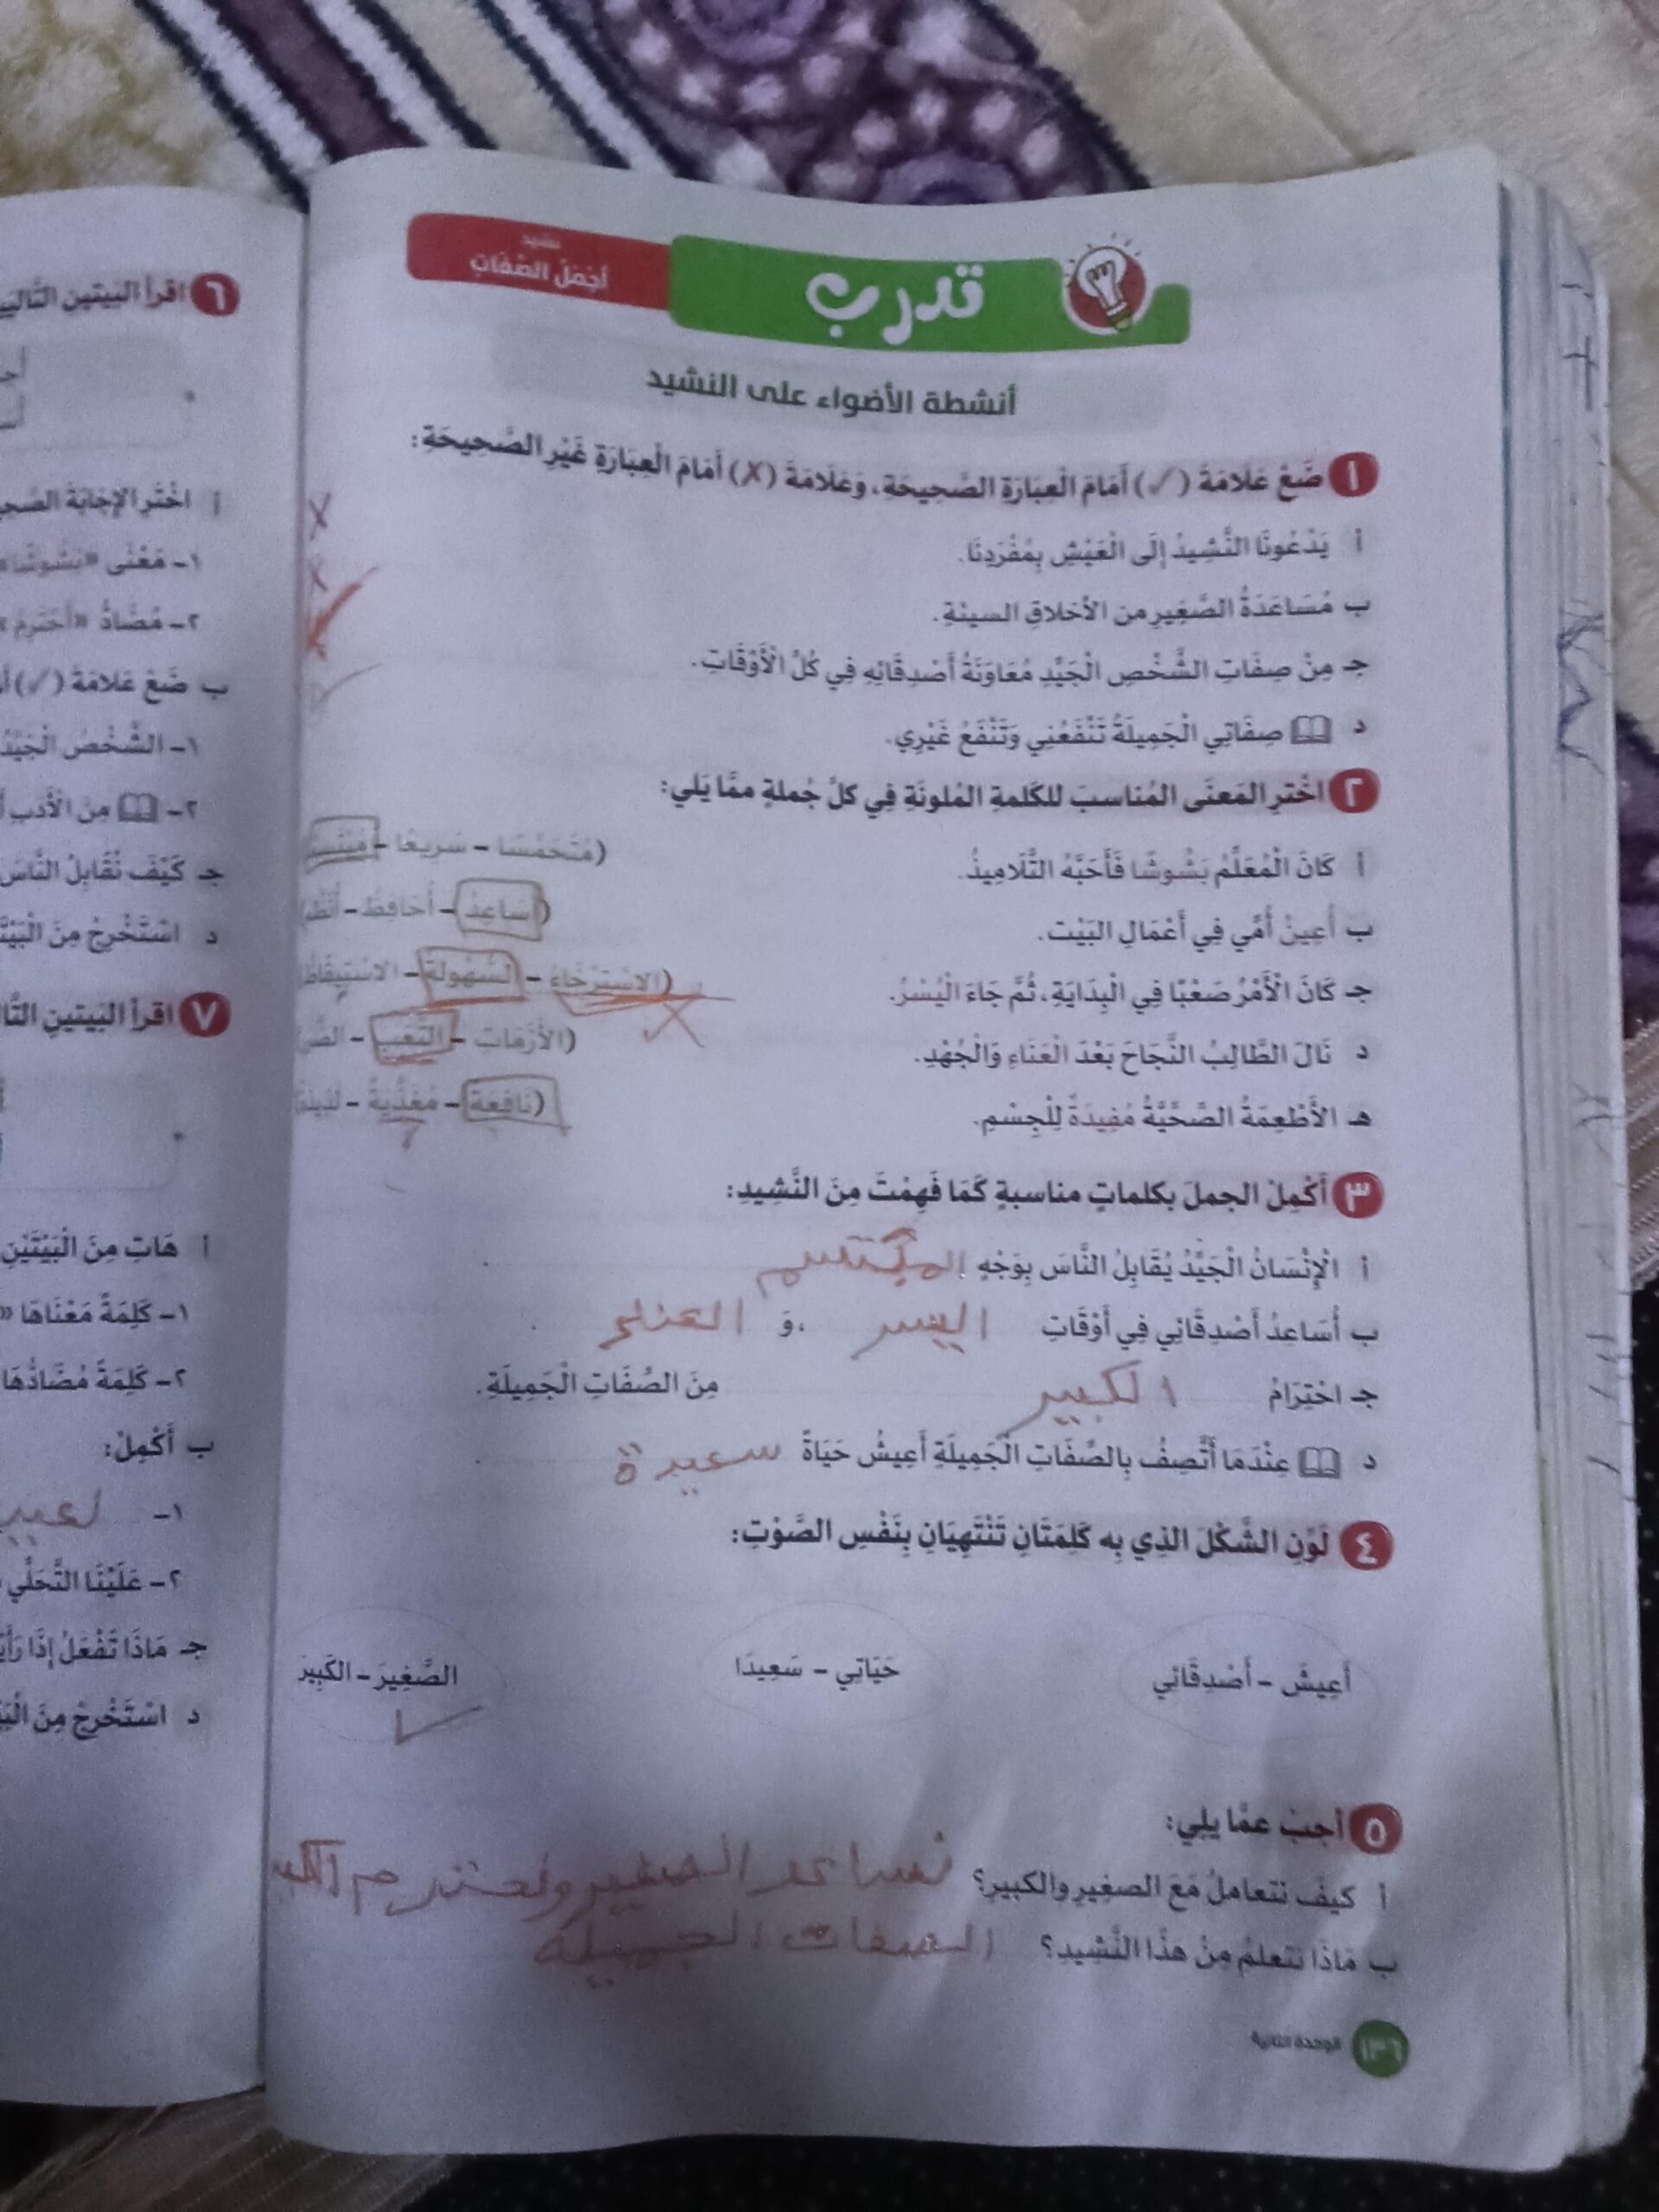 نشيد
أجمل الصفات
تدرب
أنشطة الأضواء على النشيد
١ ضَعْ عَلَامَةَ (✓) أَمَامَ الْعِبَارَةِ الصَّحِيحَةِ، وَعَلَامَةَ (X) أَمَامَ الْعِبَارَةِ غَيْرِ الصَّحِيحَةِ:
أ يَدْعُونَا النَّشِيدُ إِلَى الْعَيْشِ بِمُفْرَدِنَا. X
ب مُسَاعَدَةُ الصَّغِيرِ من الأخلاقِ السيئةِ. X
جـ مِنْ صِفَاتِ الشَّخْصِ الْجَيِّدِ مُعَاوَنَةُ أَصْدِقَائِهِ فِي كُلِّ الْأَوْقَاتِ. ✓
د صِفَاتِي الْجَمِيلَةُ تَنْفَعُنِي وَتَنْفَعُ غَيْرِي. ✓
٢ اخْترِ المَعنَى المُناسبَ للكَلمةِ المُلونَةِ فِي كلِّ جُملةٍ ممَّا يَلي:
أ كَانَ الْمُعَلِّمُ بَشُوشًا فَأَحَبَّهُ التَّلَامِيذُ. (مُتَحَمِّسًا - سَرِيعًا -
ب أُعِينُ أُمِّي فِي أَعْمَالِ البَيْتِ. (أُسَاعِدُ - أُحَافِظُ -
جـ كَانَ الْأَمْرُ صَعْبًا فِي الْبِدَايَةِ، ثُمَّ جَاءَ الْيُسْرُ. (الاسْتِرْخَاءُ - السُّهُولَةُ - الاسْتِيقَاظُ
د نَالَ الطَّالِبُ النَّجَاحَ بَعْدَ الْعَنَاءِ وَالْجُهْدِ. (الأَزَمَاتِ - التَّعَبِ -
هـ الأَطْعِمَةُ الصِّحِّيَّةُ مُفِيدَةٌ لِلْجِسْمِ. (نَافِعَة - مُغَذِّيَةٌ - لذيذة
٣ أَكْمِلْ الجملَ بكلماتٍ مناسبةٍ كَمَا فَهِمْتَ مِنَ النَّشِيدِ:
أ الْإِنْسَانُ الْجَيِّدُ يُقَابِلُ النَّاسَ بِوَجْهٍ المبتسم .
ب أُسَاعِدُ أَصْدِقَائِي فِي أَوْقَاتِ اليسر ، وَ .
جـ احْتِرَامُ الكبير مِنَ الصِّفَاتِ الْجَمِيلَةِ.
د عِنْدَمَا أَتَّصِفُ بِالصِّفَاتِ الْجَمِيلَةِ أَعِيشُ حَيَاةً سعيدة .
٤ لَوِّنِ الشَّكْلَ الذِي بِه كَلِمَتَانِ تَنْتَهِيَانِ بِنَفْسِ الصَّوْتِ:
أَعِيشُ - أَصْدِقَائي
حَيَاتِي - سَعِيدًا
الصَّغِيرَ - الكَبِيرَ
✓
٥ أجبْ عمَّا يلِي:
أ كيفَ نتعاملُ مَعَ الصغِيرِ والكبيرِ؟ نساعد الصغير ونحترم
ب مَاذَا نتعلمُ مِنْ هَذَا النَّشِيدِ؟ الصفات الجميلة
١٣٦ الوحدة الثانية
٦ اقرأ البَيتينِ التَّاليَينِ
أ اخْترِ الإِجَابَةَ
١- مَعْنَى «بَشُوشًا»
٢- مُضَادُّ «أَحْتَرِمُ»
ب ضَعْ عَلَامَةَ (✓)
١- الشَّخْصُ الْجَيِّدُ
٢- مِنَ الْأَدَبِ
جـ كَيْفَ نُقَابِلُ النَّاسَ
د اسْتَخْرِجْ مِنَ
٧ اقرأ البَيتينِ
أ هَاتِ مِنَ الْبَيْتَيْنِ
١- كَلِمَةً مَعْنَاهَا
٢- كَلِمَةً مُضَادُّهَا
ب أَكْمِلْ:
١-
٢- عَلَيْنَا التَّحَلِّي
جـ مَاذَا تَفْعَلُ إِذَا
د اسْتَخْرِجْ مِنَ